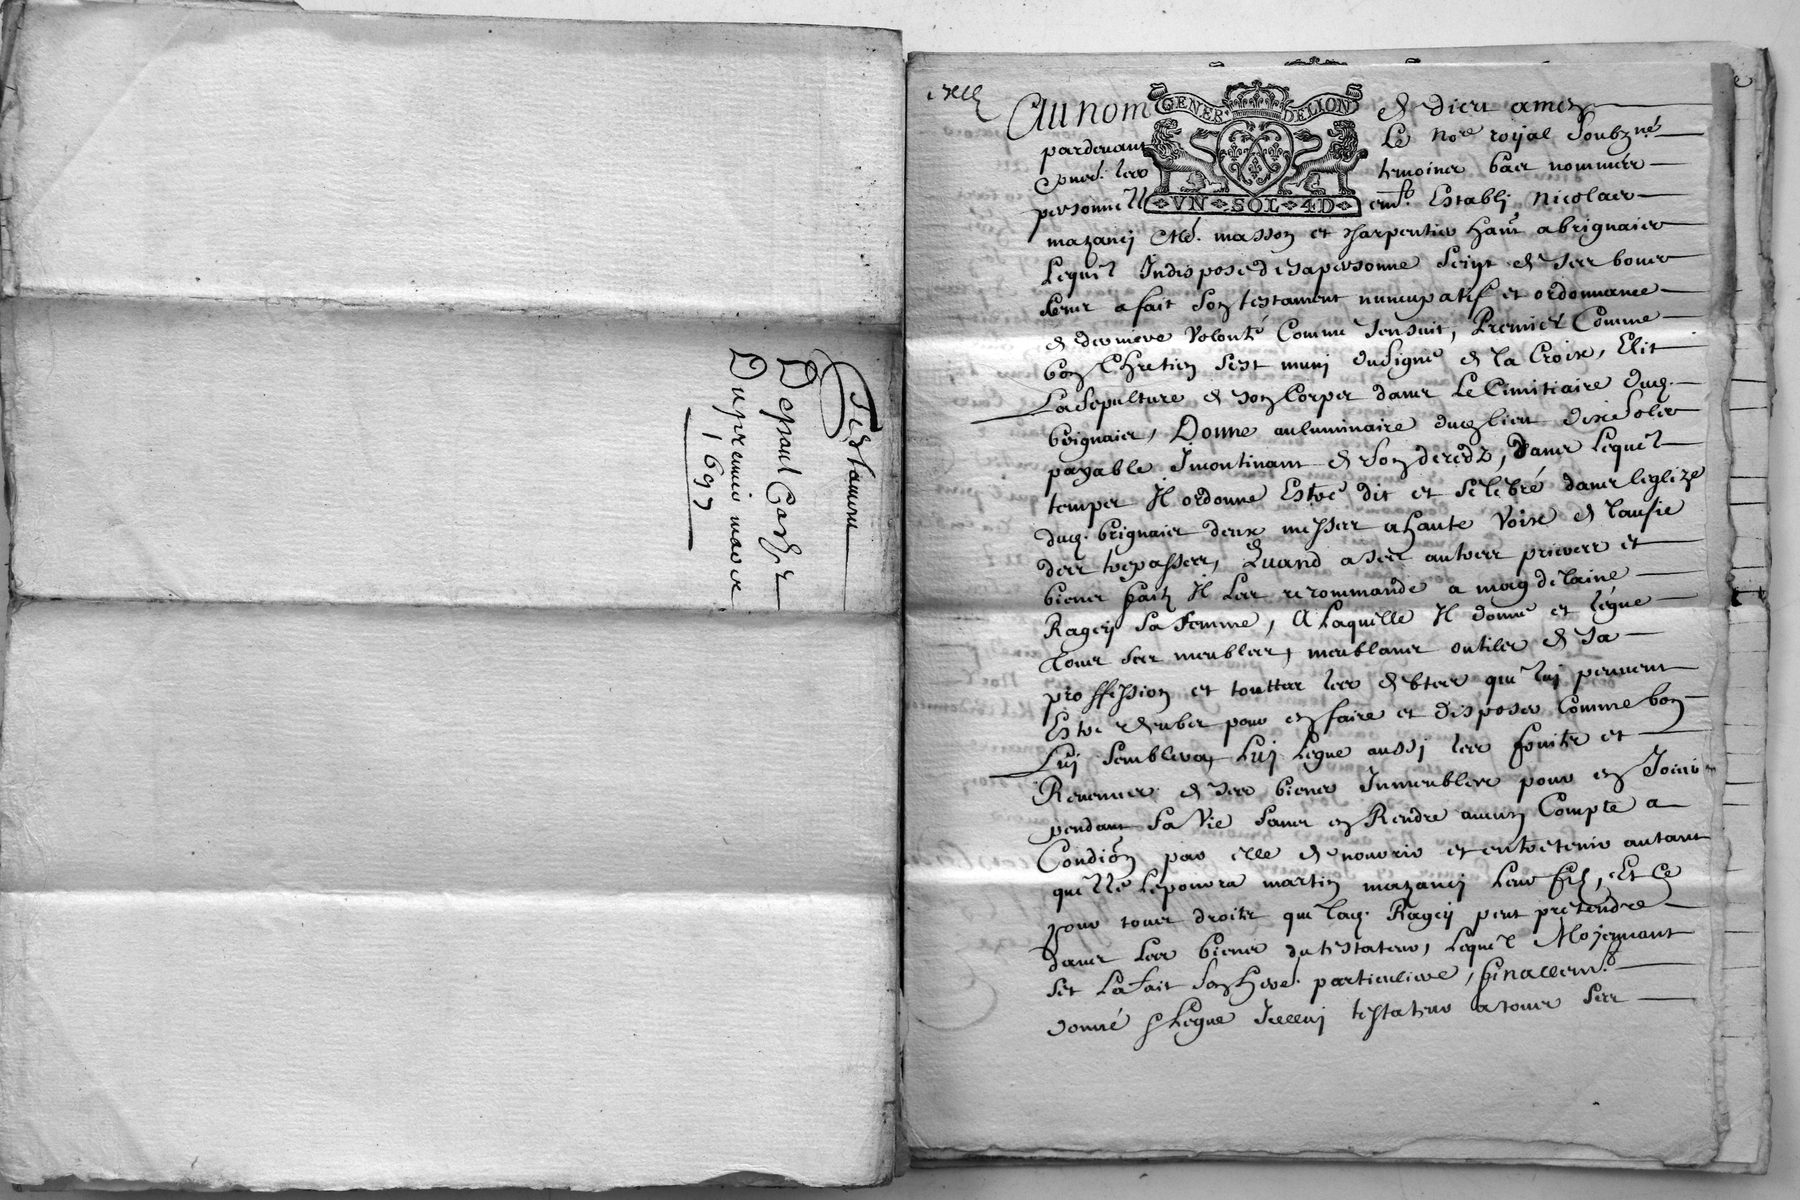 Testament
De paul
Du premier mars
1697
Au nom GENER DE LION de dieu amen
pardevant Le Nore royal soubzné
temoines bas nommés
personnell UN SOL 4D emt Establi Nicolas
mazanei Me masson et charpentier hant a brignais
Lequel Indisposé de sa personne de ses bons
sens a fait son testament nuncupatif et ordonnance
de derniere volonté Comme sensuit, Premier Comme
bon Chretien sest muni du signe de la Croix, Elit
La sepulture de son Corps dans Le Cimitiaire dud
brignais, Donne au luminaire dud lieu dix solz
payable Incontinant de son deredz, dans Lequel
temps Il ordonne Estre dit et Selebré dans leglize
dud brignais deux messes a haute voix de loufie
des trepasses, Quand a ses autres prieres et
biens faitz Il les recommande a magdelaine
Ragey sa femme, A Laquelle Il donne et légue
tous ses meubles, meublans outils de sa
proffession et touttes les debtes qui luy peuvent
Estre deubes pour en faire et disposer Comme bon
Luy semblera, Luy Legue aussy les fruits et
Revenus de ses biens Immeubles pour en Jouir
pendant sa vie sans en Rendre aucun Compte a
Condion par elle de nourir et entretenir autant
quelle le poura martin mazanei Leur fils, Et Ce
pour tous droits que lad Ragey peut prétendre
dans Les biens du testateur, Lequel Moyennant
set La fait son hered particuliere, finallemt
donné & Legue Icelluy testateur a tous ses